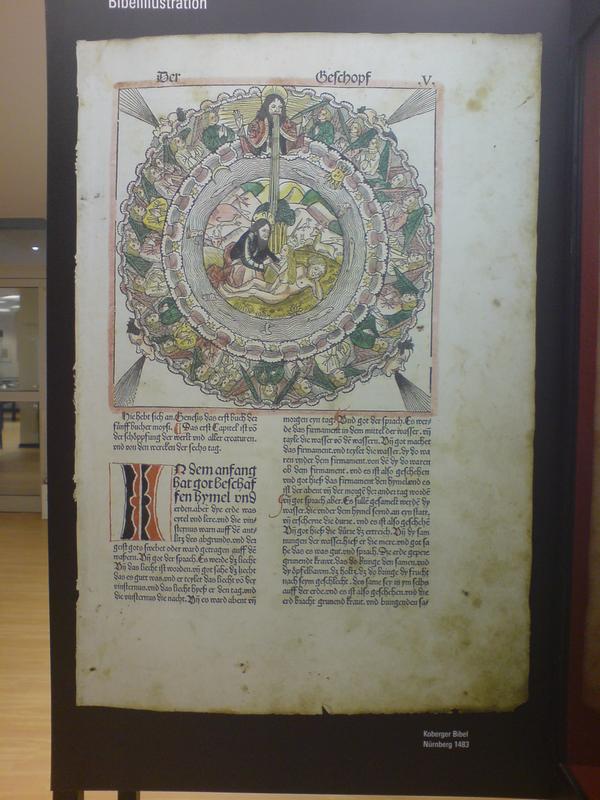 Bibelillustration
Der Geschopf .V.
Hie hebt sich an. Genesis das erst buch der
fünff bucher moysi. Das erst Capitel ist vō
der schöpffung der werlt vnd aller creaturen.
vnd von den wercken der sechs tag.
IN dem anfang
hat got beschaf
fen hymel vnd
erden. aber dye erde was
eytel vnd lere. vnd die vin
sternus warn auff dē ant
litz des abgrunds. vnd der
geist gots swebet oder ward getragen auff dē
wassern. Vñ got der sprach. Es werde dz liecht
Vñ das liecht ist worden. vñ got sahe dz liecht
das es gut was. vnd er teylet das liecht vō der
vinsternus. vnd das liecht hyeß er den tag. vnd
die vinsternus die nacht. Vñ es ward abent vñ
morgen eyn tag. Vnd got der sprach. Es wer
de das firmament in dem mittel der wasser. vñ
tayle die wasser vō dē wassern. Vñ got machet
das firmament. vnd teylet die wasser. dy do wa
ren vnder dem firmament. von dē dy do waren
ob dem firmament. vnd es ist also geschehen
vnd got hieß das firmament den hymel. vnd es
ist der abent vñ der morgē der ander tag wordē
Vñ got sprach aber. Es süllē gesamelt werdē dy
wasser. die vnder dem hymel send. an eyn statt.
vñ erscheyne die dürre. vnd es ist also geschehē
Vñ got hieß die dürre dz ertreich. Vñ dy sam
nungen der wasser. hieß er die mere. vnd got sa
he das es was gut. vnd sprach. Die erde gepere
grunend kraut. das do bringe den samen. vnd
dy öpffelbawm. dz holtz. dz do bringe dy frucht
nach seym geschlecht. des same sey in ym selbs
auff der erde. vnd es ist also geschehen. vnd die
erd bracht grunend kraut. vnd bringenden sa
Koberger Bibel
Nürnberg 1483